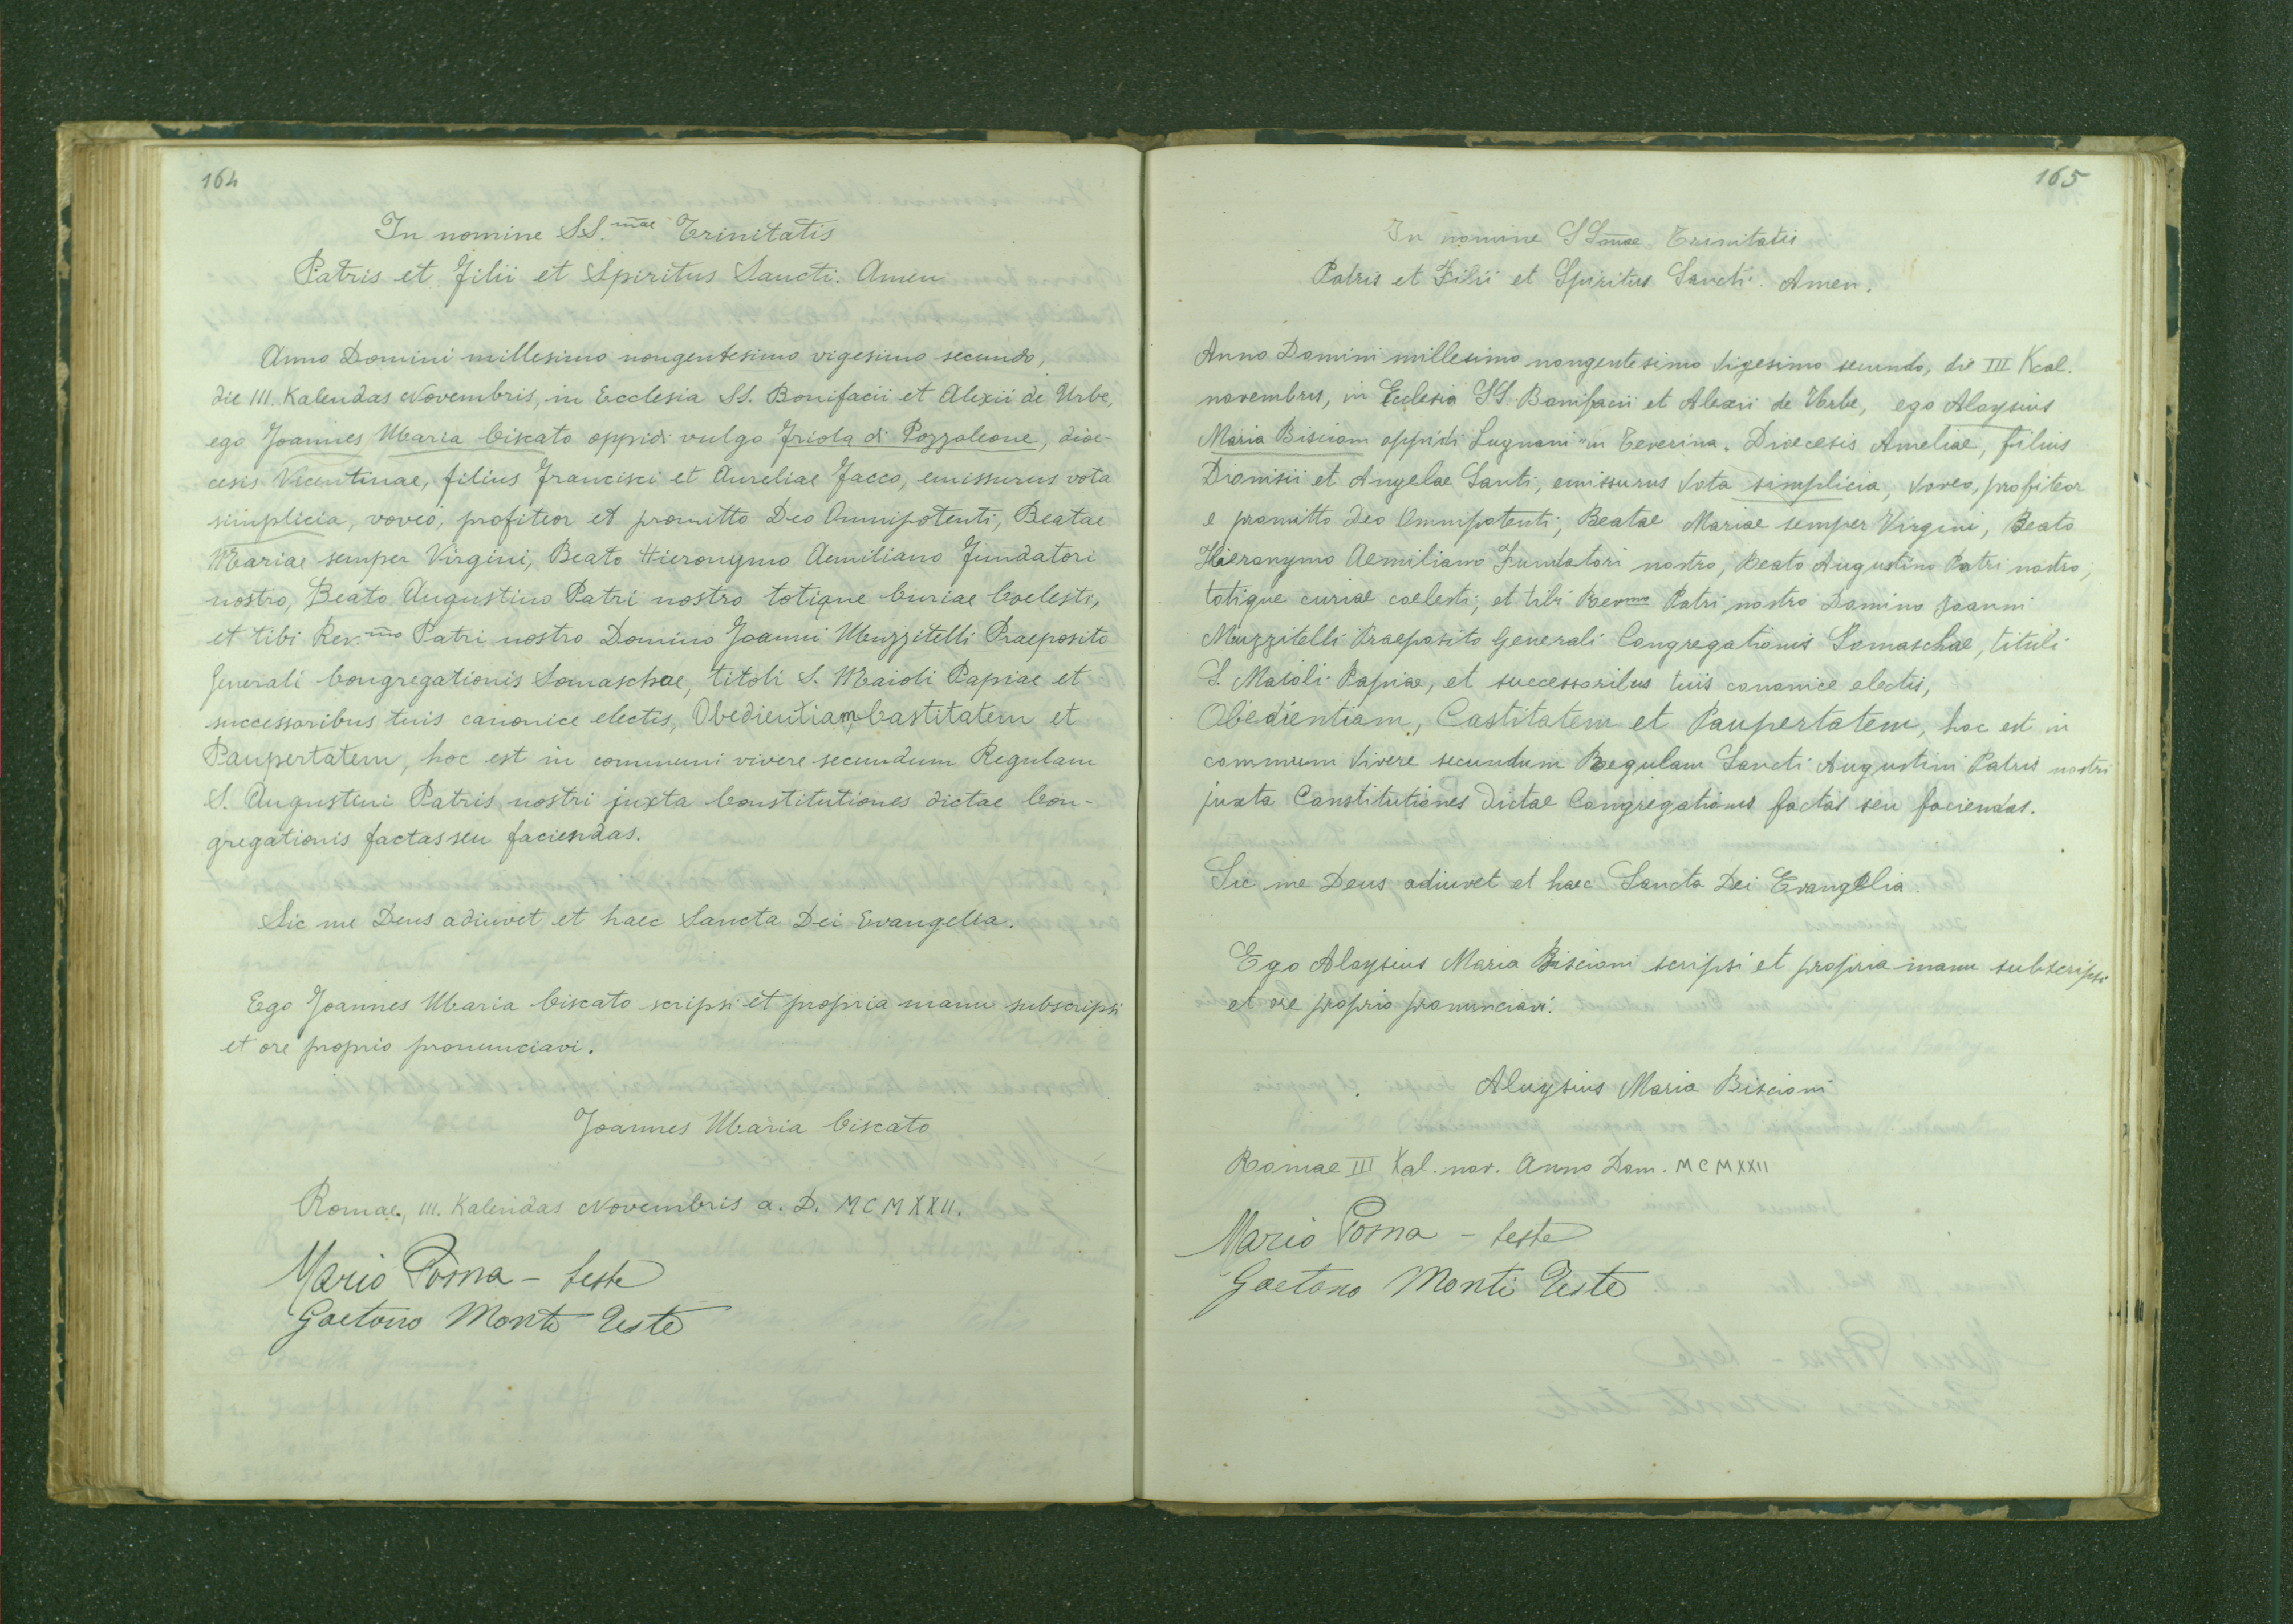 164
In nomine SS.mae Trinitatis
Patris et Filii et Spiritus Sancti. Amen
Anno Domini millesimo nongentesimo vigesimo secundo,
die III. Kalendas Novembris, in Ecclesia SS. Bonifacii et Alexii de Urbe,
ego Joannes Maria Ciscato oppidi vulgo Friola di Pozzoleone, dioe-
cesis Vicentinae, filius Francisci et Aureliae Facco, emissurus vota
simplicia, voveo, profiteor et promitto Deo Omnipotenti, Beatae
Mariae semper Virgini, Beato Hieronymo Aemiliano Fundatori
nostro, Beato Augustino Patri nostro totique Curiae Coelesti,
et tibi Rev.mo Patri nostro Domino Joanni Muzzitelli Praeposito
Generali Congregationis Somaschae, titoli S. Maioli Papiae et
successoribus tuis canonice electis, Obedientiam, Castitatem et
Paupertatem, hoc est in communi vivere secundum Regulam
S. Augustini Patris nostri juxta Constitutiones dictae Con-
gregationis factas seu faciendas.
Sic me Deus adiuvet et haec Sancta Dei Evangelia.
Ego Joannes Maria Ciscato scripsi et propria manu subscripsi
et ore proprio pronunciavi.
Joannes Maria Ciscato
Romae, III. Kalendas Novembris a. D. MCMXXII.
Mario Posna - teste
Gaetano Monti Teste
165
In nomine SSmae Trinitatis
Patris et Filii et Spiritus Sancti. Amen.
Anno Domini millesimo nongentesimo vigesimo secundo, die III Kal.
novembris, in Ecclesia SS. Bonifacii et Alexii de Urbe, ego Aloysius
Maria Biscioni oppidi Lugnani "in Teverina. Dioecesis Ameliae, filius
Dionisii et Angelae Santi, emissurus vota simplicia, voveo, profiteor
e promitto Deo Omnipotenti, Beatae Mariae semper Virgini, Beato
Hieronymo Aemiliano Fundatori nostro, Beato Augustino Patri nostro,
totique curiae coelesti, et tibi Revmo Patri nostro Domino Joanni
Muzzitelli Praeposito Generali Congregationis Somaschae, tituli
S. Maioli Papiae, et successoribus tuis canonice electis,
Obedientiam, Castitatem et Paupertatem, hoc est in
commum vivere secundum Regulam Sancti Augustini Patris nostri
juxta Constitutiones dictae Congregationis factas seu faciendas.
Sic me Deus adiuvet et haec Sancta Dei Evangelia
Ego Aloysius Maria Biscioni scripsi et propria manu subscripsi
et ore proprio pronunciavi.
Aluysius Maria Biscioni
Romae III Kal. nov. Anno Dom. MCMXXII
Mario Posna - teste
Gaetano Monti Teste